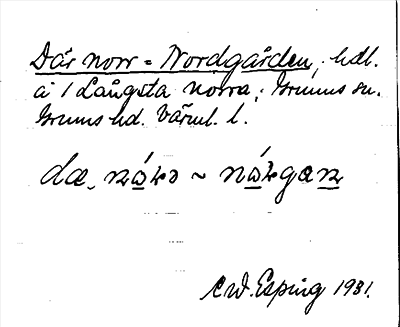 Där norr = Nordgården, hdl.
å 1 Långsta norra; Grums sn.
Grums hd. Värml. l.
dæ, nɷ́rə ~ nɷ́rgæn
C.W. Esping 1931.